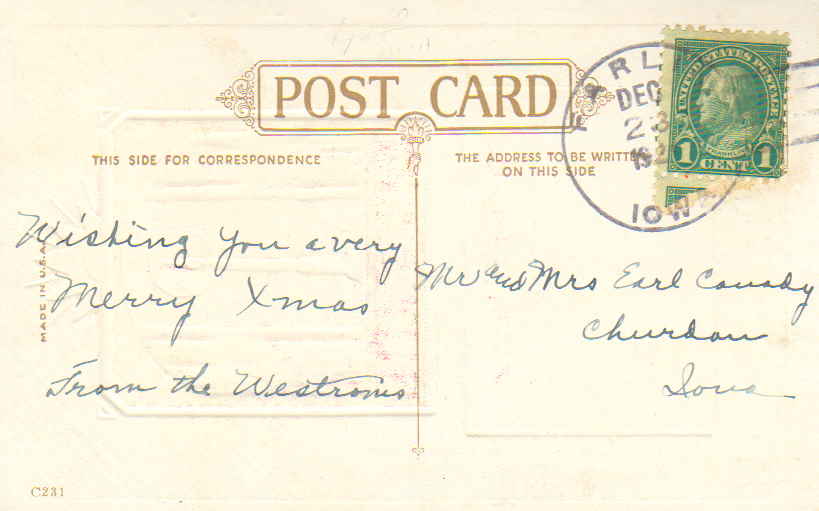 POST CARD
THIS SIDE FOR CORRESPONDENCE
THE ADDRESS TO BE WRITTEN
ON THIS SIDE
DEC
23
IOWA
UNITED STATES POSTAGE
FRANKLIN
1 CENT 1
Wishing you a very
Merry Xmas
From the Westroms
Mr and Mrs Earl Canady
Churdan
Iowa
MADE IN U.S.A.
C231